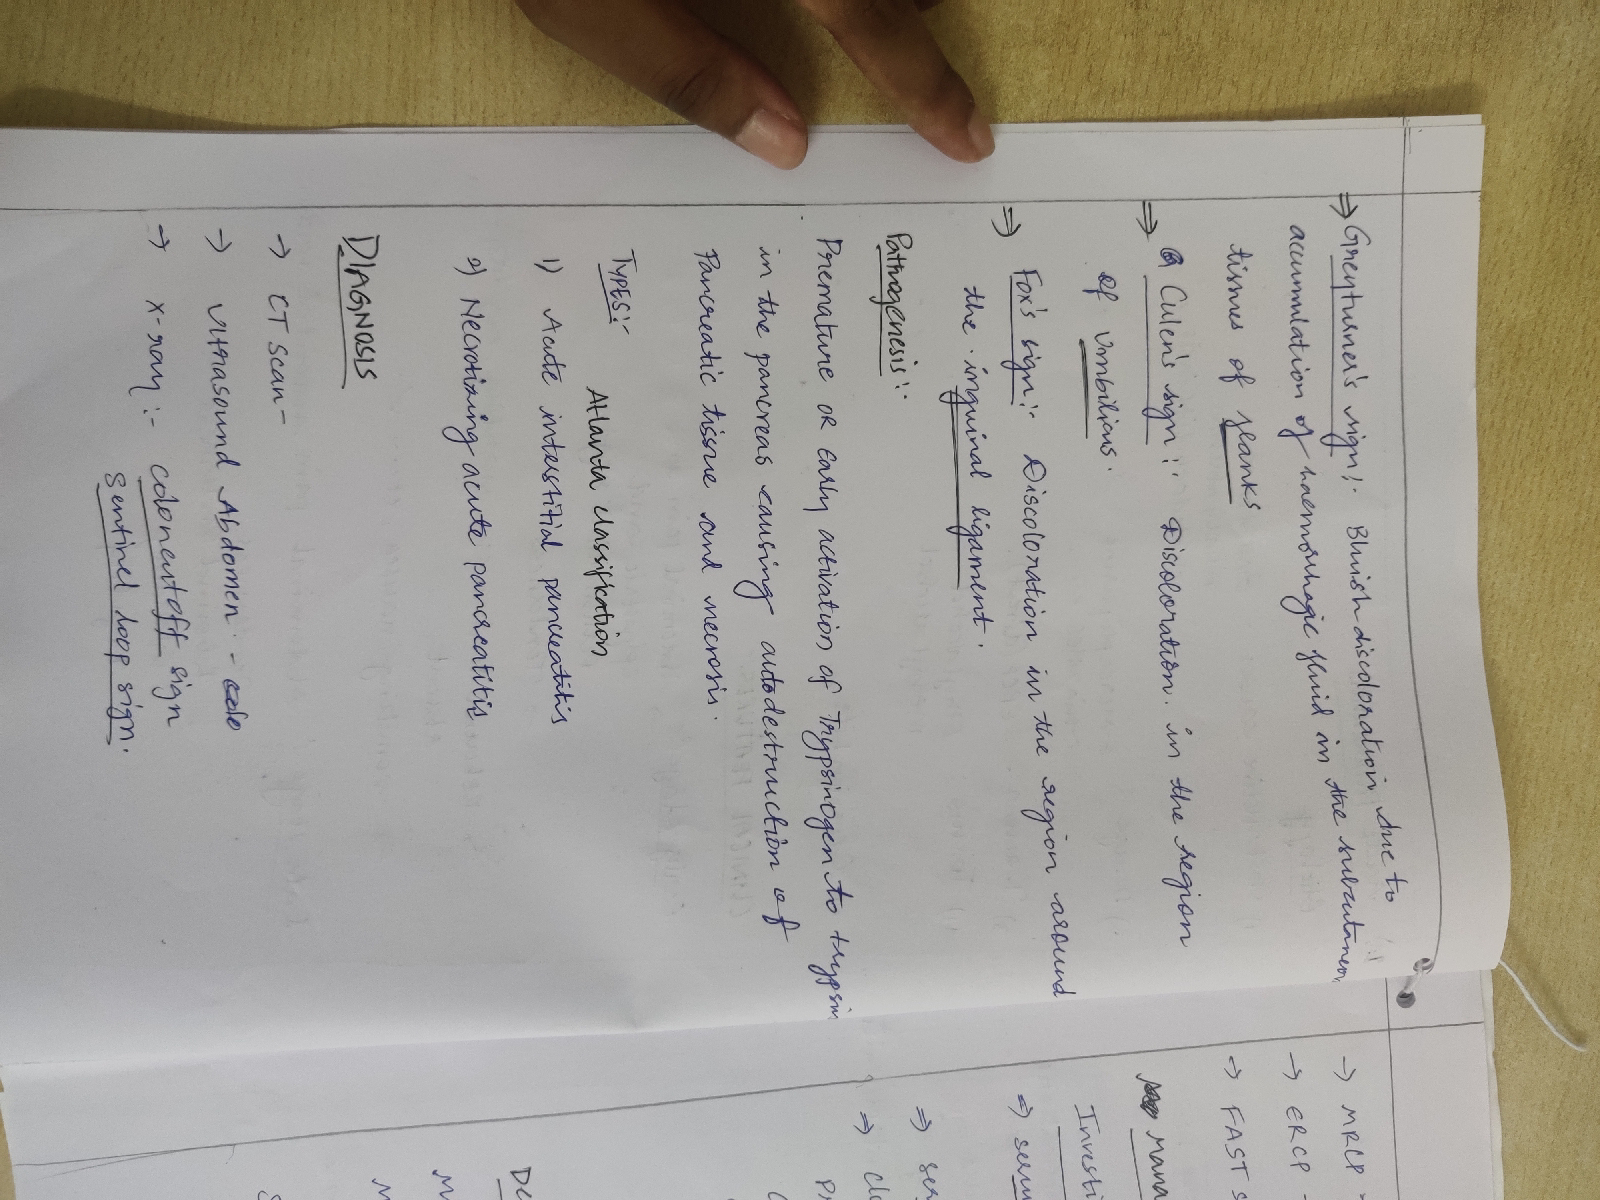 ⇒ Greyturner's sign:- Bluish discoloration due to
accumulation of haemorrhagic fluid in the subcutaneou
tissues of flanks
⇒ Culen's sign:- Discoloration. in the region
of Umbilicus.
⇒ Fox's sign:- Discoloration in the region around
the inguinal ligament.
Pathogenesis:-
Premature or early activation of Trypsinogen to trypsin
in the pancreas causing autodestruction of
Pancreatic tissue and necrosis.
TYPES:- Atlanta classification
1) Acute interstitial pancreatitis
2) Necrotizing acute pancreatitis
DIAGNOSIS
→ CT scan-
→ Ultrasound Abdomen -
→ X-ray:- colon cutoff sign
sentinel loop sign.
→ MRCP -
→ ERCP -
→ FAST s
mana
Investi
⇒ seru
⇒ ser
⇒ cl
De